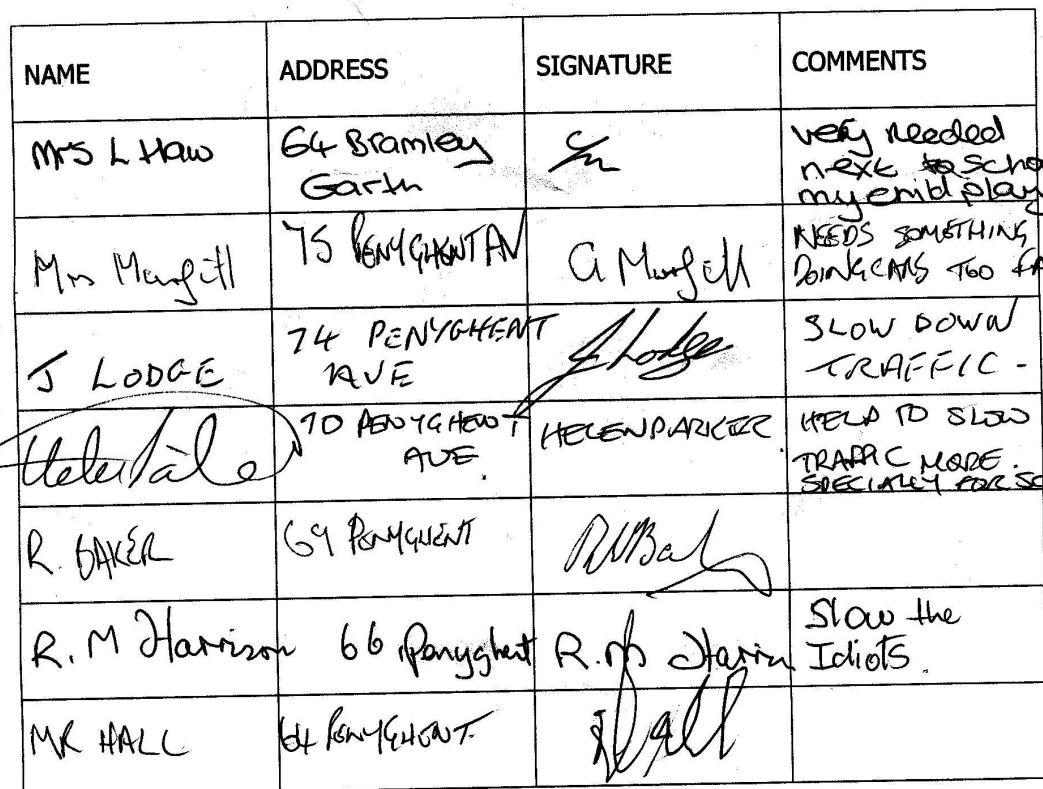 NAME ADDRESS SIGNATURE COMMENTS
Mrs L Haw 64 Bramley Garth very needed
next to scho
my child play
Mrs 75 PENYGHENT AV G NEEDS SOMETHING
DOING CARS TOO FA
J LODGE 74 PENYGHENT AVE J Lodge SLOW DOWN
TRAFFIC -
70 PENYGHENT AVE. HELEN PARKER. HELP TO SLOW
TRAFFIC MORE.
SPECIALLY FOR SC
R. BAKER 69 PENYGHENT
R. M Harrison 66 Penyghent R. M Harris Slow the
Idiots.
MR HALL 64 PENYGHENT. Hall